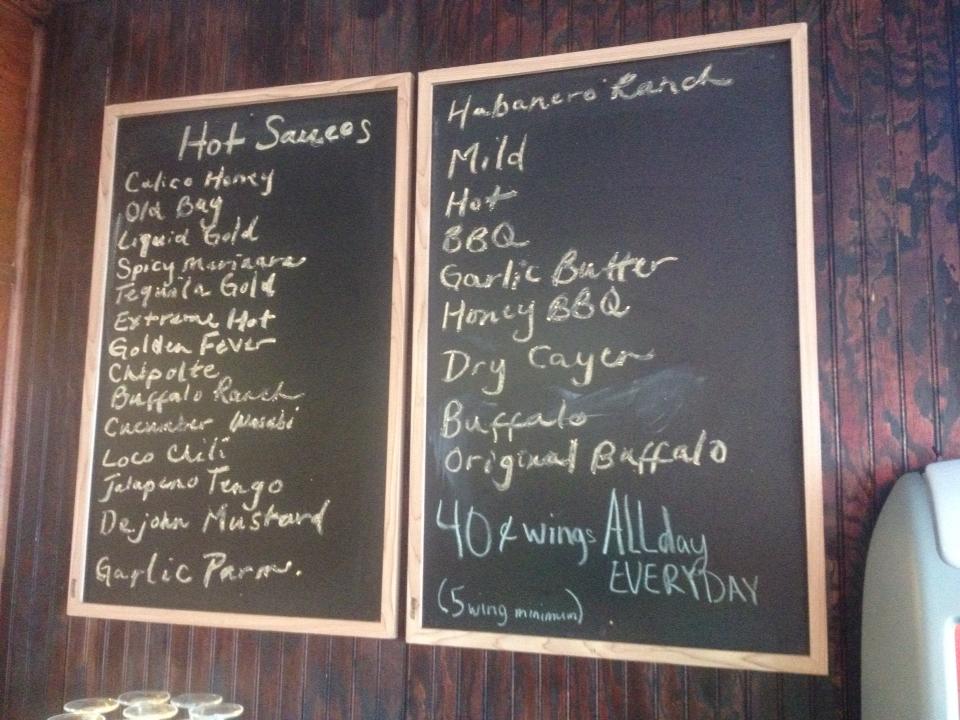 Hot Sauces
Calico Honey
Old Bay
Liquid Gold
Spicy Marinara
Tequila Gold
Extreme Hot
Golden Fever
Chipolte
Buffalo Ranch
Cucumber Wasabi
Loco Chili
Jalapeno Tengo
Dejohn Mustard
Garlic Parm.
Habanero Ranch
Mild
Hot
BBQ
Garlic Butter
Honey BBQ
Dry Cayen
Buffalo
Original Buffalo
40¢ wings ALL day
EVERYDAY
(5 wing minimum)